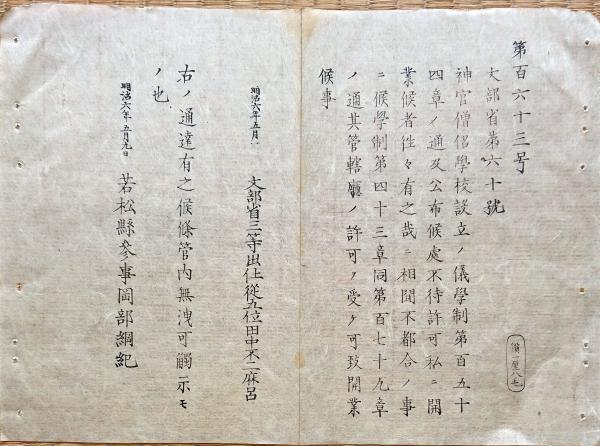 第百六十三号
文部省第六十號
神官僧侶學校設立ノ儀學制第百五十
四章ノ通及公布候處不待許可私ニ開
業候者徃々有之哉ニ相聞不都合ノ事
ニ候學制第四十三章同第百七十九章
ノ通其管轄廳ノ許可ノ受ケ可致開業
候事
明治六年五月一
文部省三等出仕從五位田中不二麻呂
右ノ通達有之候條管内無洩可觸示モ
ノ也
明治六年五月九日
若松縣參事岡部綱紀
価一厘八毛